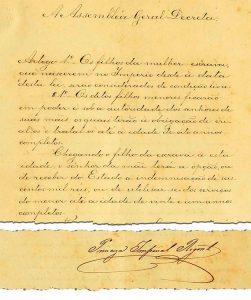 A Assembléa Geral Decreta:
Artigo 1º. Os filhos da mulher escrava,
que nascerem no Imperio desde a data
desta lei, serão considerados de condição livre.
§ 1º. Os ditos filhos menores ficarão
em poder e sob a autoridade dos senhores de
suas mãis, os quais terão a obrigação de cre-
al-os e tratal-os até a idade de oito annos
completos.
Chegando o filho da escrava a esta
idade, o senhor da mãi terá a opção, ou
de receber do Estado a indemnisação de seis
centos mil reis, ou de utilisar-se dos serviços
do menor até a idade de vinte e um annos
completos.
Princeza Imperial Regente